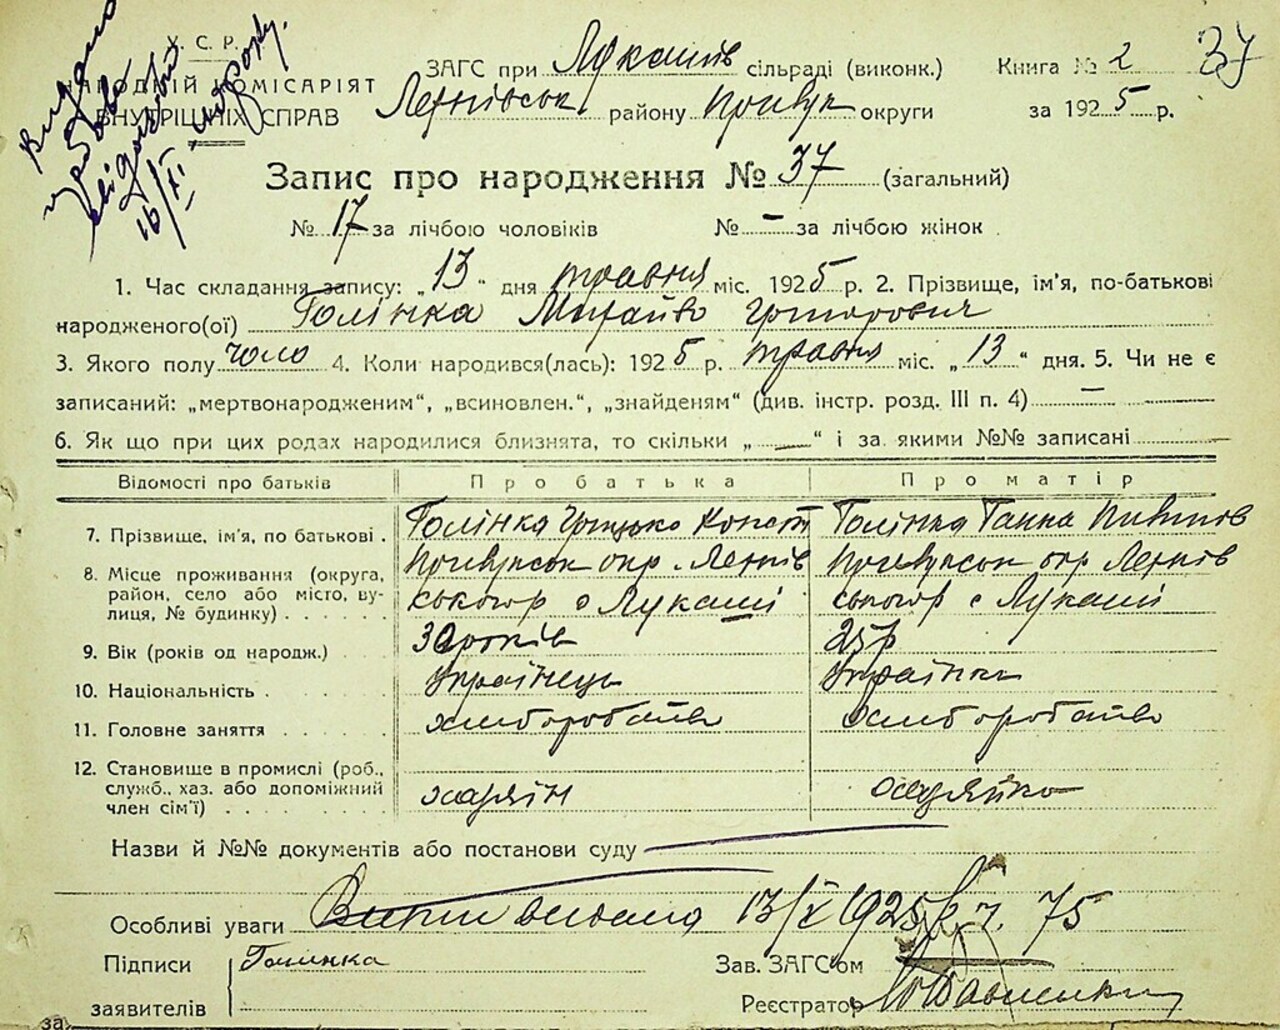 Видано
16/XI
У.С.Р.
НАРОДНІЙ КОМІСАРІЯТ
ВНУТРІШНІХ СПРАВ
ЗАГС при Лукашів сільраді (виконк.) Книга № 2 37
району Прилук округи за 1925 р.
Запис про народження № 37 (загальний)
№ 17 за лічбою чоловіків № – за лічбою жінок
1. Час складання запису: „13“ дня травня міс. 1925 р. 2. Прізвище, ім'я, по-батькові
народженого(ої) Голінка Михайло Григорович
3. Якого полу чоло 4. Коли народився(лась): 1925 р. травня міс. „13“ дня. 5. Чи не є
записаний: „мертвонародженим“, „всиновлен.“, „знайденям“ (див. інстр. розд. III п. 4) —
6. Як що при цих родах народилися близнята, то скільки „—“ і за якими №№ записані —
Відомості про батьків Про батька Про матір
7. Прізвище, ім'я, по батькові . Голінка Грицько Конст Голінка Ганна
8. Місце проживання (округа, Прилуцьк окр. Прилуцьк окр
район, село або місто, ву- с Лукаші с Лукаші
лиця, № будинку) . . . . .
9. Вік (років од народж.) 30 років 25 р
10. Національність . . . . . Українець Українка
11. Головне заняття . . . . . хліборобство хліборобство
12. Становище в промислі (роб., хазяїн хазяйка
служб., хаз. або допоміжний
член сім'ї) . . . . . . . .
Назви й №№ документів або постанови суду
Особливі уваги 13/X 1925 р. ч. 75
Підписи Голинка Зав. ЗАГС'ом
заявителів Реєстратор
за